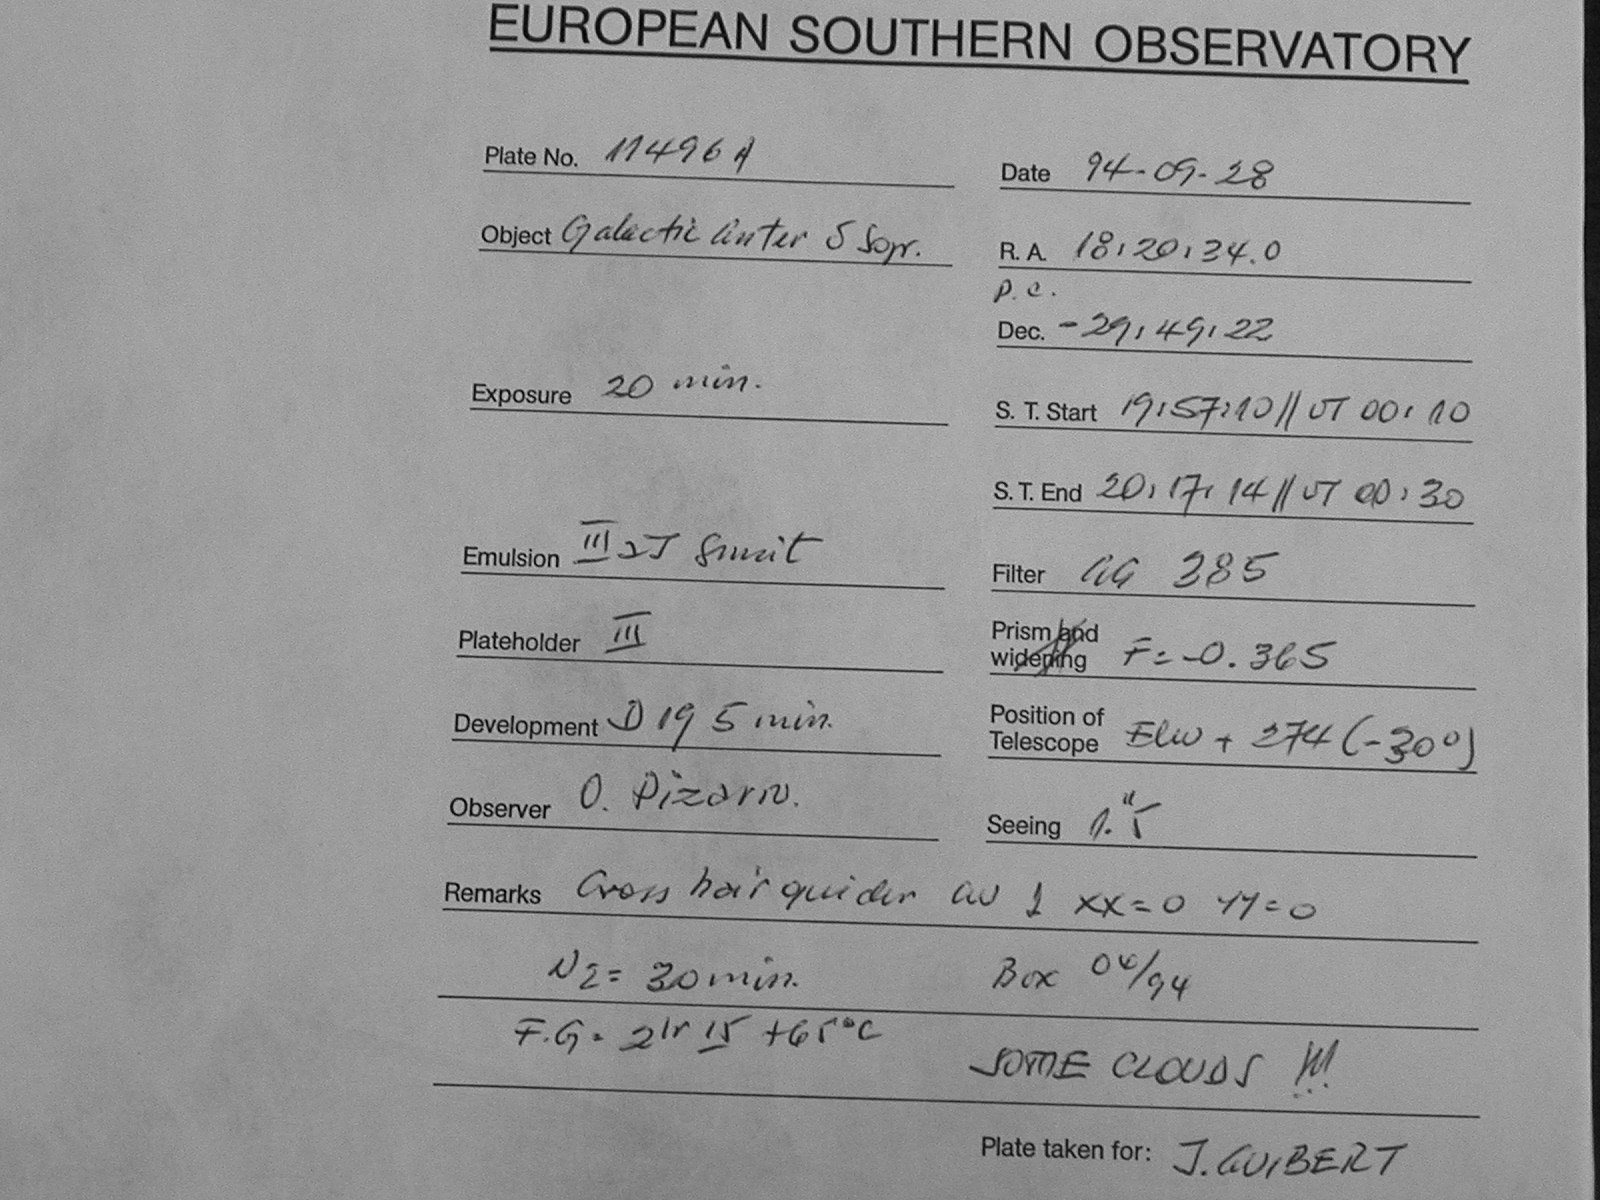 EUROPEAN SOUTHERN OBSERVATORY
Plate No. 11496 A
Date 94-09-28
Object Galactic Center S
R. A. 18:20:34.0
p.c.
Dec. -29:49:22
Exposure 20 min.
S. T. Start 19:57:10 // UT 00:10
S. T. End 20:17:14 // UT 00:30
Emulsion III aJ
Filter GG 385
Plateholder III
Prism and widening F=-0.365
Development D 19 5 min.
Position of Telescope + 274 (-30°)
Observer O. Pizarro.
Seeing 1."5
Remarks Cross hair guider XX=0 YY=0
N2= 30 min. Box 04/94
F.G. = 2hr 15 +65°C
SOME CLOUDS !!!
Plate taken for: J. GUIBERT